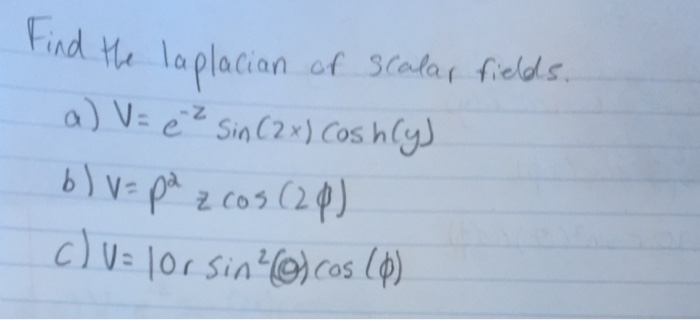 Find the laplacian of scalar fields.
a) V= e^-z sin(2x) cosh(y)
b) V= ρ² z cos(2φ)
c) V= 10r sin²(θ) cos(φ)